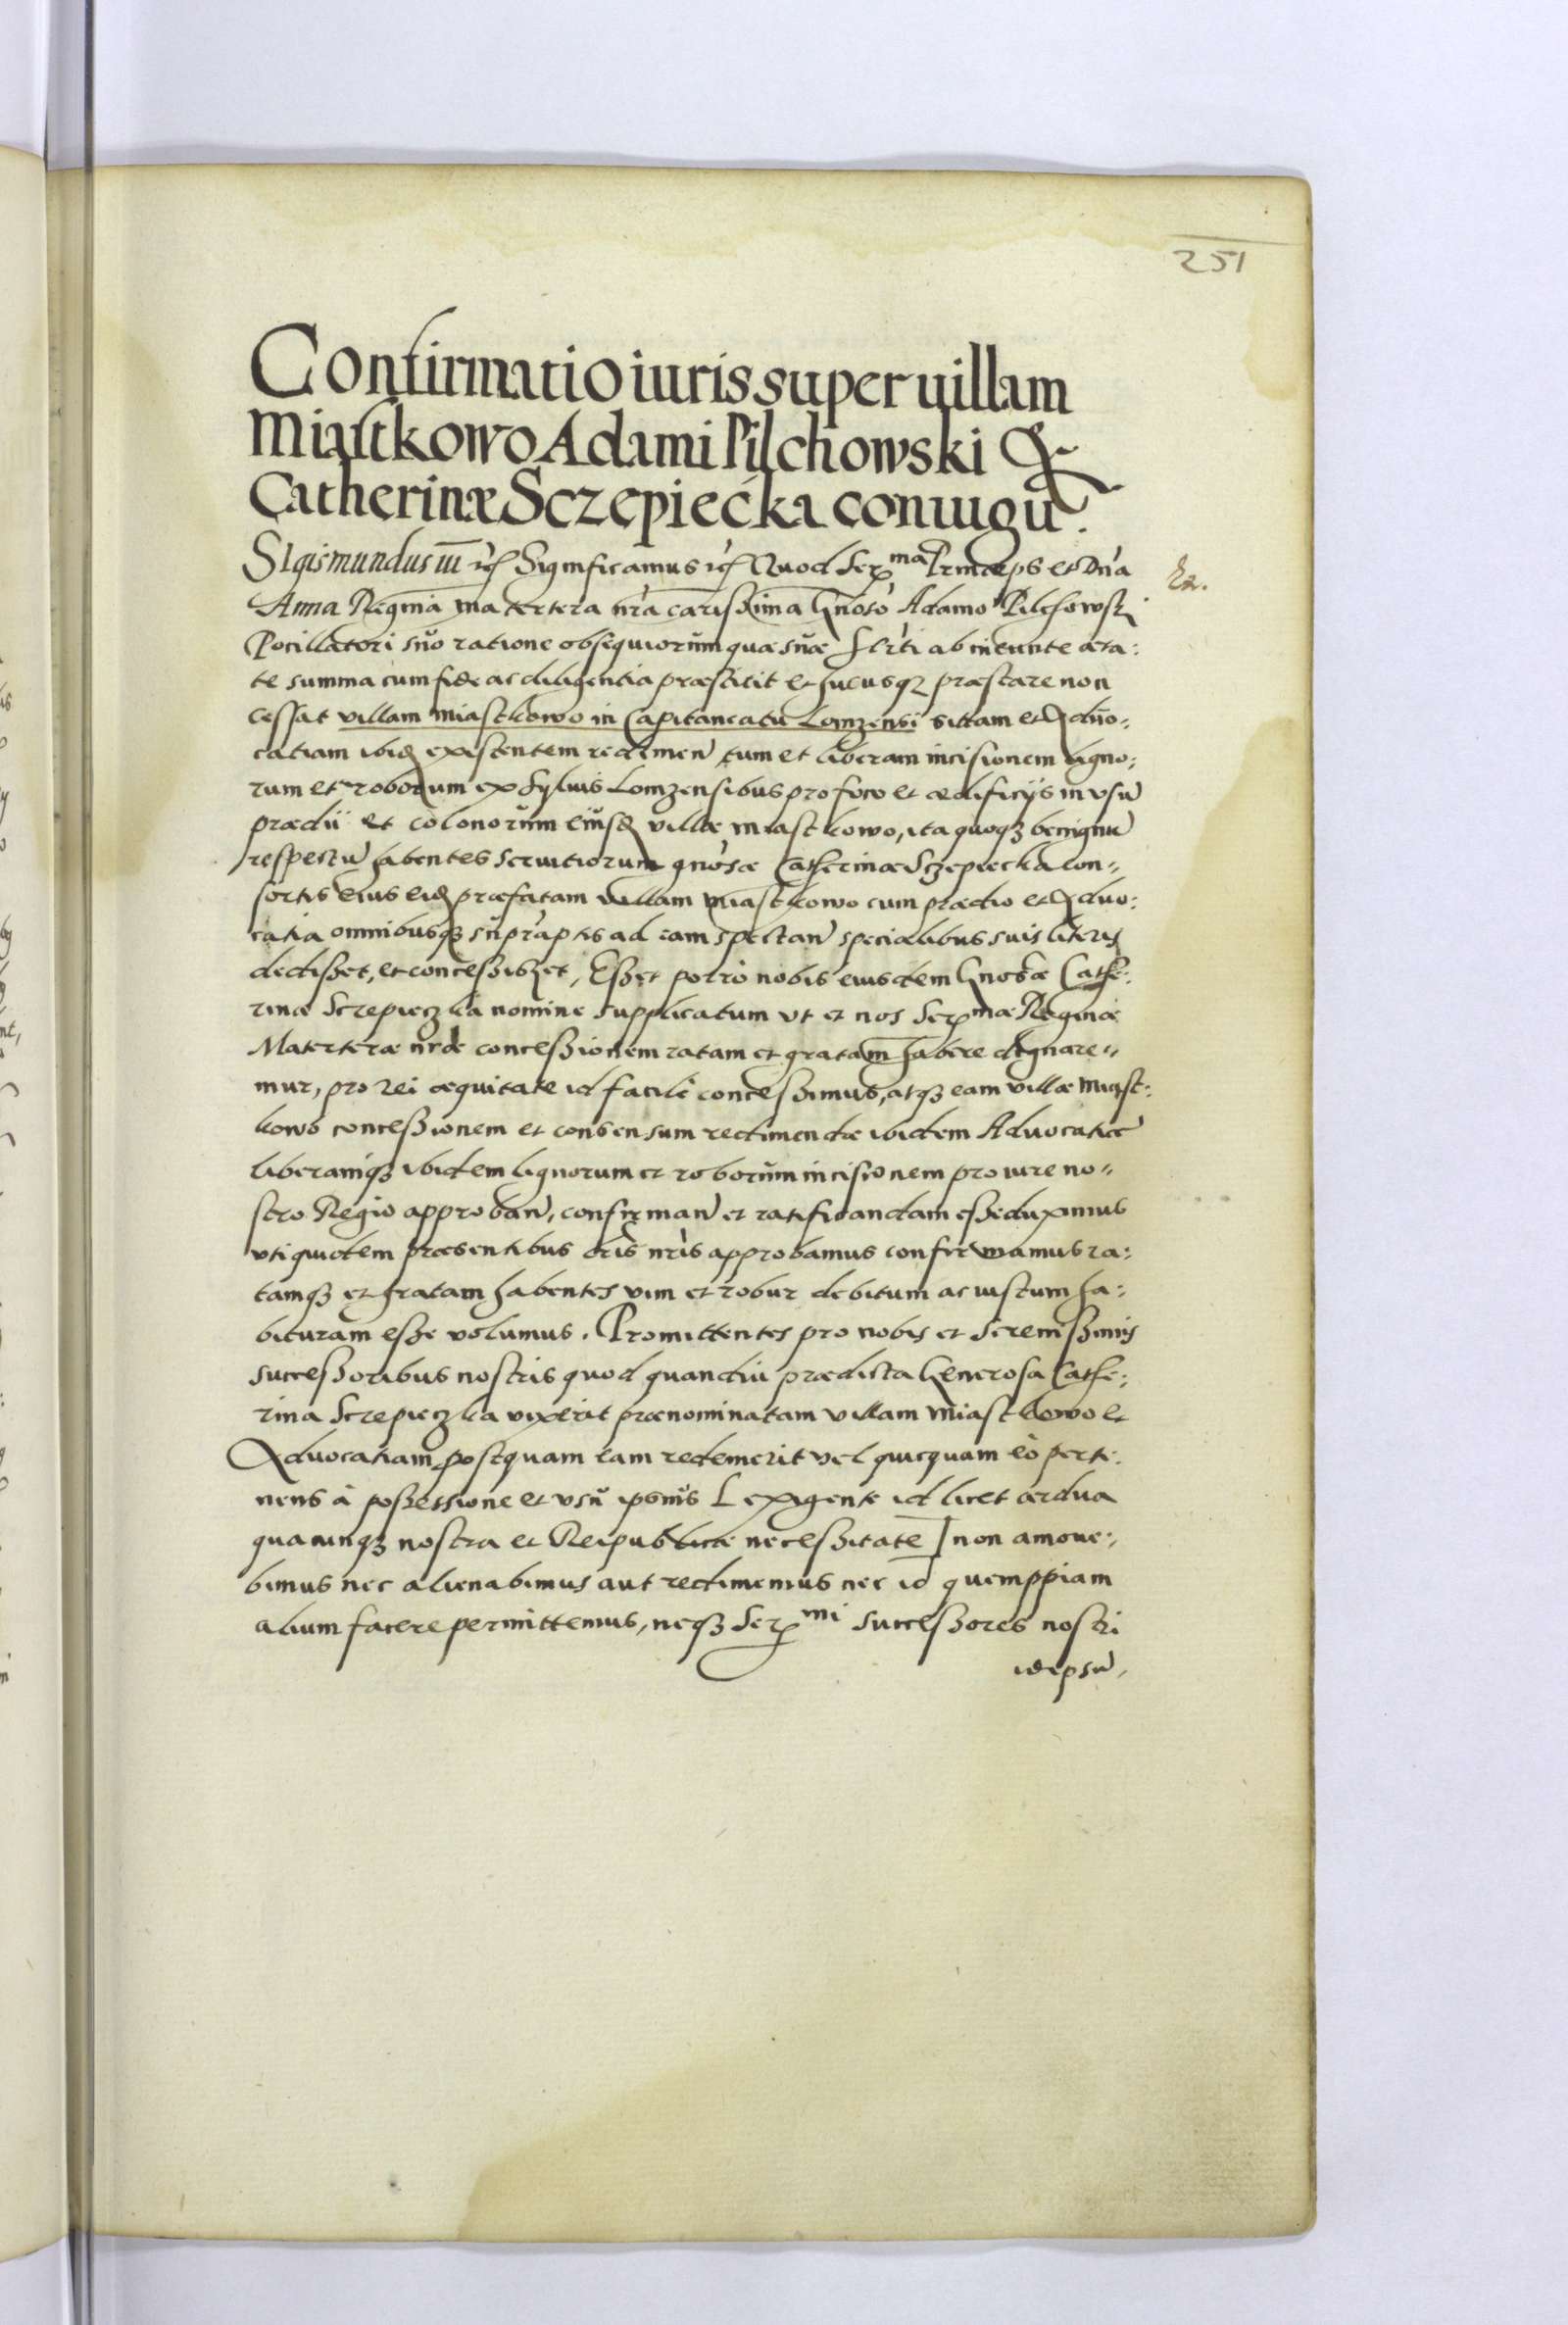 251
Confirmatio iuris super uillam
Miastkowo Adami Pilchowski &
Catherinæ Sczepiećka coniugũ.
SIgismundus III etc Significamus etc Quod Ser^ma Princeps et Dn̄a
Anna Regina matertera nr̄a carissima Gnoso Adamo Pilchowski
Pocillatori suo ratione obsequiorum quæ suæ Srti ab ineunte æta:
te summa cum fide ac diligentia præstitit et hucusq; præstare non
cessat villam Miastkowo in Capitaneatu Lomzensi sittam et Aduo:
catiam ibid existentem redimen̄ tum et liberam incisionem ligno:
rum et roborum ex syluis Lomzensibus pro foco et ædificijs in vsū
prædii et colonorum eiusd villæ Miastkowo, ita quoq; benignū
respectū habentes seruitiorum gnosæ Catherinæ Sczepiecka con„
sortis eius eid præfatam villam Miastkowo cum prædio et Aduo:
catia omnibusq; supraptis ad eam spectan̄ specialibus suis literis
dedisset, et concessisset, Esset porro nobis eiusdem Gnosæ Cathe:
rinæ Screpieczka nomine supplicatum vt et nos Ser^mæ Reginæ
Materteræ nræ concessionem ratam et gratam habere dignare„
mur, pro rei æquitate id facilè concessimus, atq; eam villæ Miast:
kowo concessionem et consensum redimendæ ibidem Aduocatiæ
liberamq; ibidem lignorum et roborum incisionem pro iure no„
stro Regio approban̄, confirman̄ et ratificandam esse duximus
vti quidem præsentibus lr̄is nr̄is approbamus confirmamus ra:
tamq; et gratam habentes vim et robur debitum ac iustum ha:
bituram esse volumus. Promittentes pro nobis et Serenissimis
successoribus nostris quod quandiu prædicta Generosa Cathe:
rina Screpieczka vixerit prænominatam villam Miastkowo et
Aduocatiam postquam eam redemerit vel quicquam eò perti:
nens à possessione et vsu ipsius [exigente id licet ardua
quacunq; nostra et Reipublicæ necessitate] non amoue:
bimus nec alienabimus aut redimemus nec id quemppiam
alium facere permittemus, neq; Ser^mi successores nostri
id ipsū,